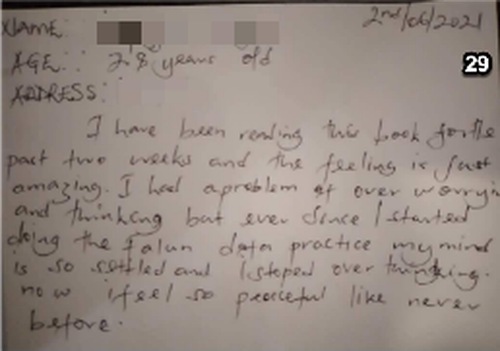 NAME:
2nd/06/2021
AGE: 28 years old
29
ADDRESS:
I have been reading this book for the
past two weeks and the feeling is just
amazing. I had a problem of over worryi
and thinking but ever since I started
doing the falun dafa practice my mind
is so settled and I stoped over thingking.
now ifeel so peaceful like never
before.